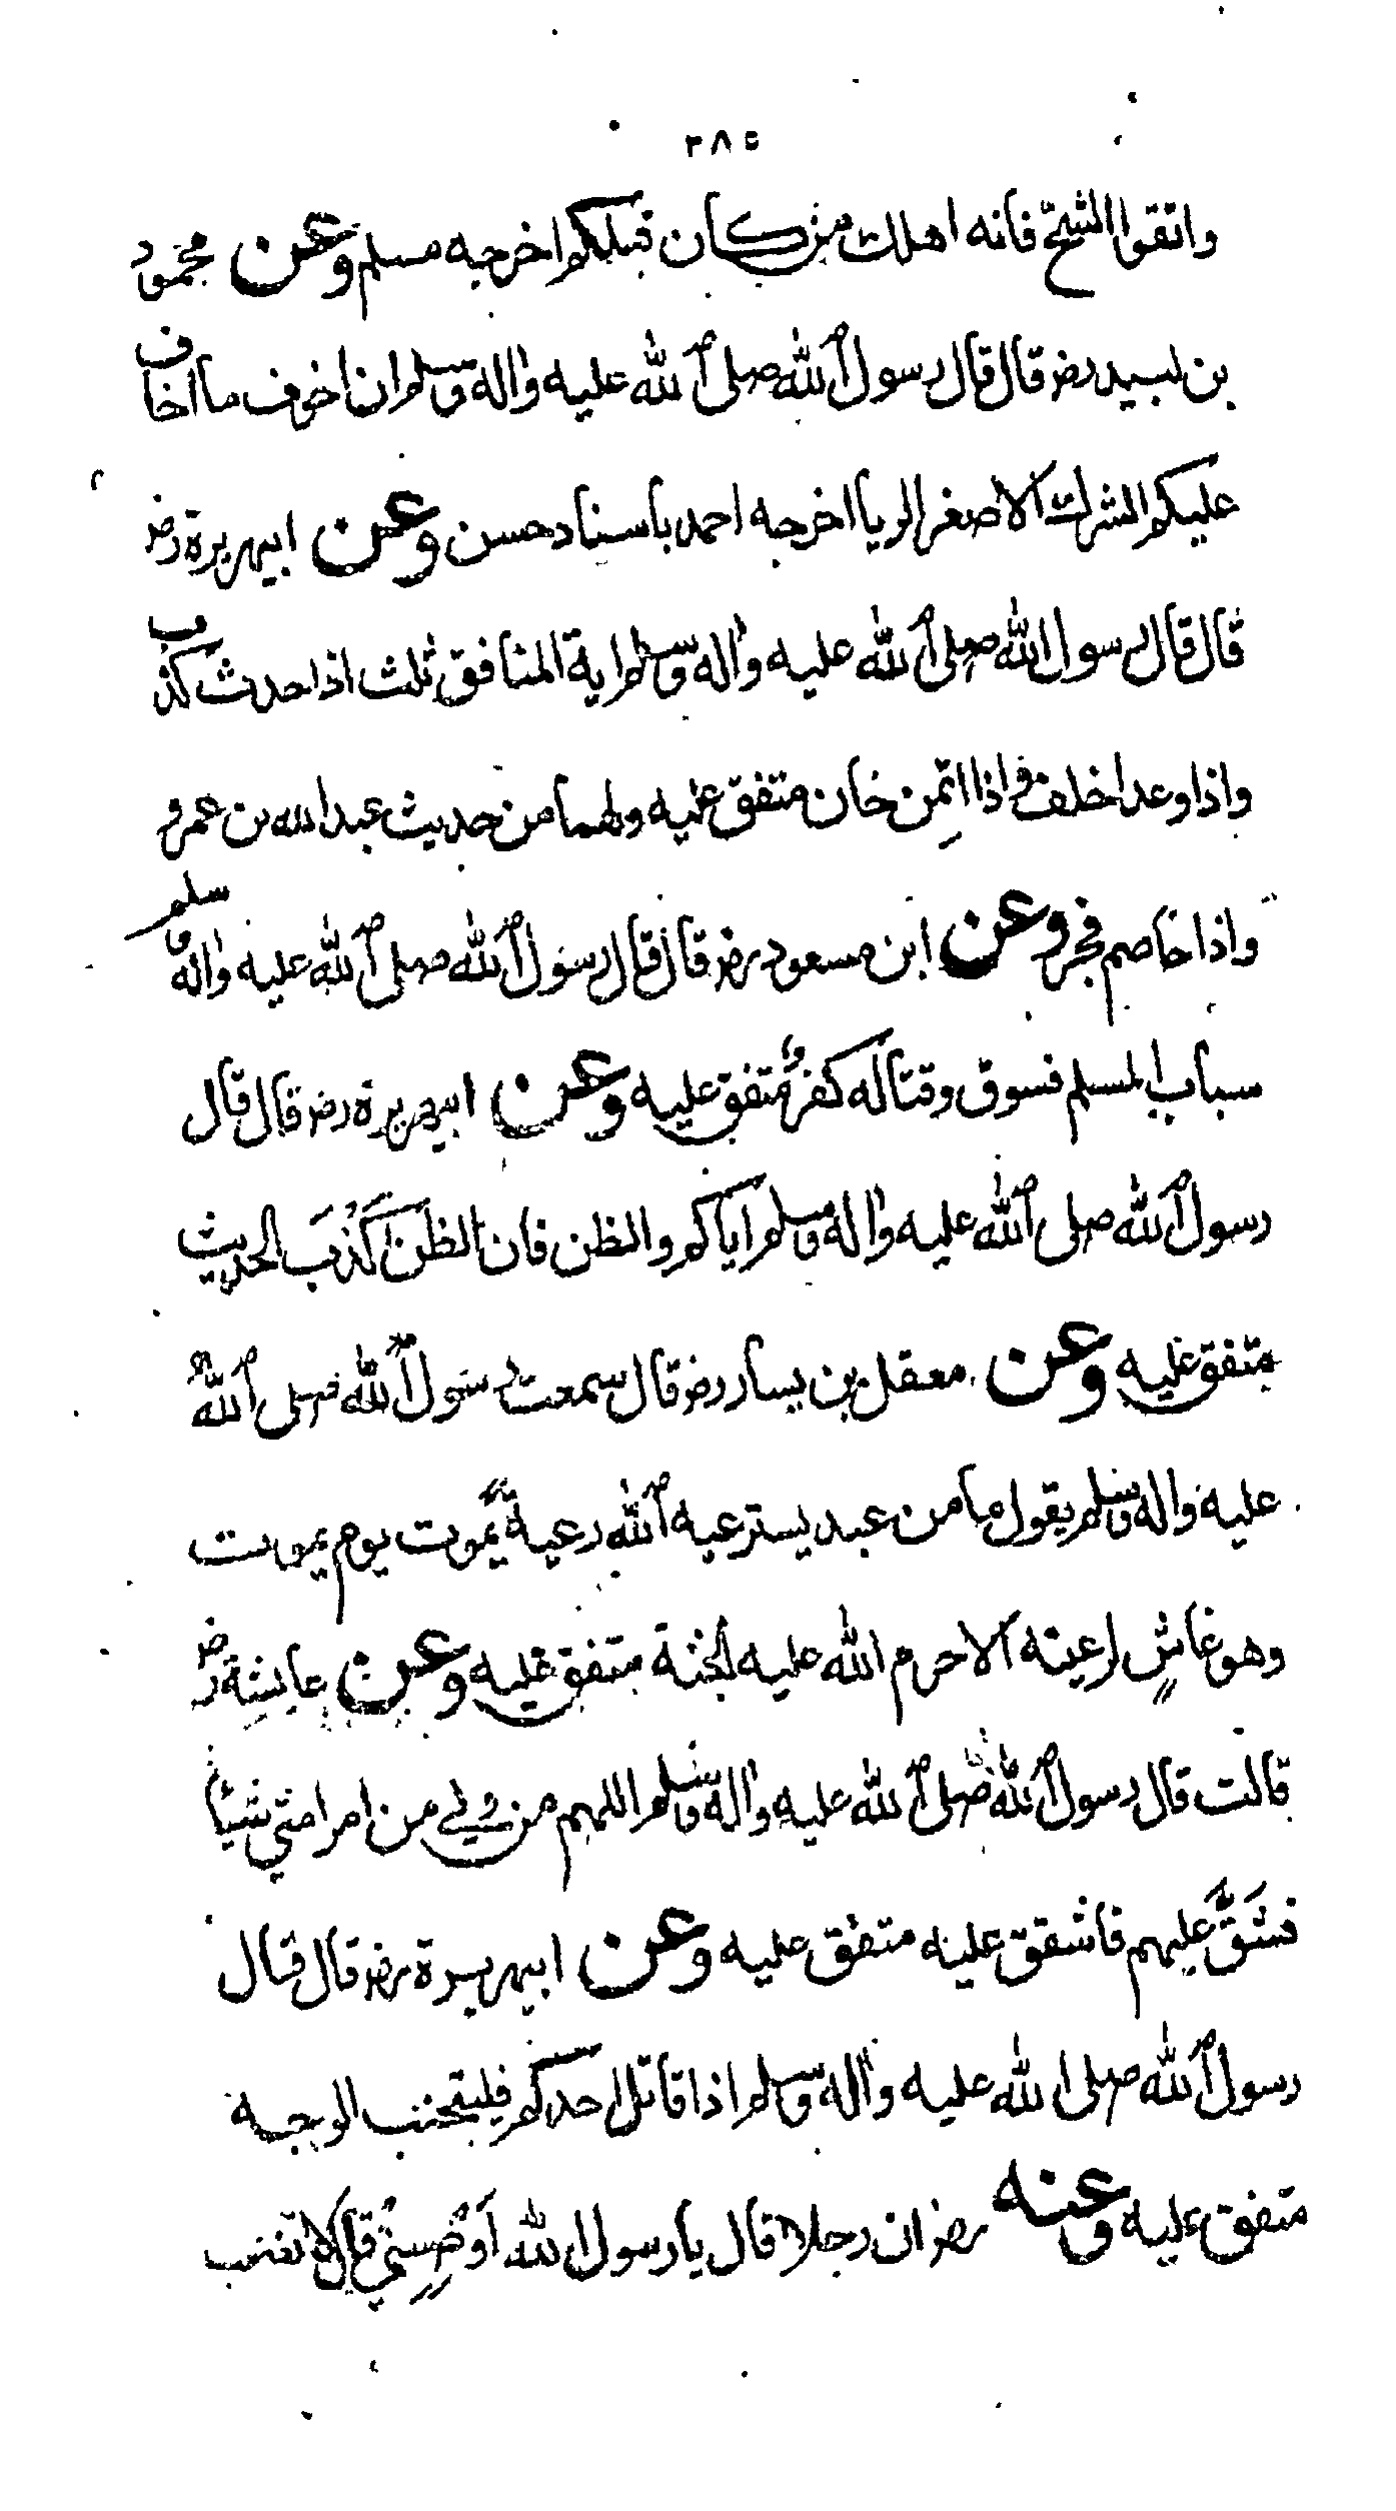 ٢٨٥
واتقوا الشح فانه اهلك من كان قبلكم اخرجه مسلم وعن محمود
بن لبيد رض قال قال رسول الله صلى الله عليه واله وسلم ان اخوف ما اخاف
عليكم الشرك الاصغر الريا اخرجه احمد باسناد حسن وعن ابيهريرة رض
قال قال رسول الله صلى الله عليه واله وسلم اية المنافق ثلث اذا حدث كذب
واذا وعد اخلف واذا اتمن خان متفق عليه ولهما من حديث عبد الله بن عمرو
واذا خاصم فجر وعن ابن مسعود رض قال قال رسول الله صلى الله عليه واله وسلم
سباب المسلم فسوق وقتاله كفر متفق عليه وعن ابيهريرة رض قال قال
رسول الله صلى الله عليه واله وسلم اياكم والظن فان الظن اكذب الحديث
متفق عليه وعن معقل بن يسار رض قال سمعت رسول الله صلى الله
عليه واله وسلم يقول ما من عبد يسترعيه الله رعية يموت يوم يموت
وهو غاش لرعيته الا حرم الله عليه الجنة متفق عليه وعن عايشة رض
قالت قال رسول الله صلى الله عليه واله وسلم اللهم من ولي من امر امتي شيئا
فشق عليهم فاشقق عليه متفق عليه وعن ابيهريرة رض قال قال
رسول الله صلى الله عليه واله وسلم اذا قاتل احدكم فليتجنب الوجه
متفق عليه وعنه رض ان رجلا قال يا رسول الله اوصني قال لا تغضب